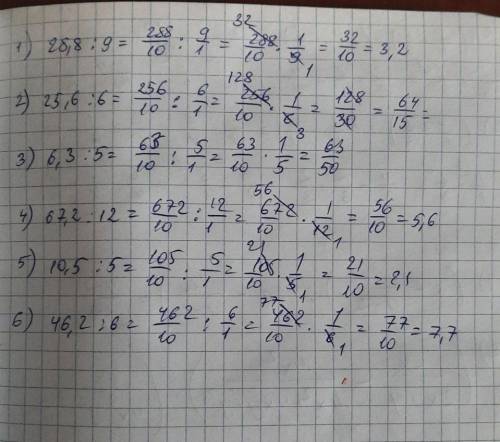 1) 28,8 : 9 = 288/10 : 9/1 = 32 288/10 · 1/9 1 = 32/10 = 3,2
2) 25,6 : 6 = 256/10 : 6/1 = 128 256/10 · 1/6 3 = 128/30 = 64/15 =
3) 6,3 : 5 = 63/10 : 5/1 = 63/10 · 1/5 = 63/50
4) 67,2 : 12 = 672/10 : 12/1 = 56 672/10 · 1/12 1 = 56/10 = 5,6
5) 10,5 : 5 = 105/10 : 5/1 = 21 105/10 · 1/5 1 = 21/10 = 2,1
6) 46,2 : 6 = 462/10 : 6/1 = 77 462/10 · 1/6 1 = 77/10 = 7,7